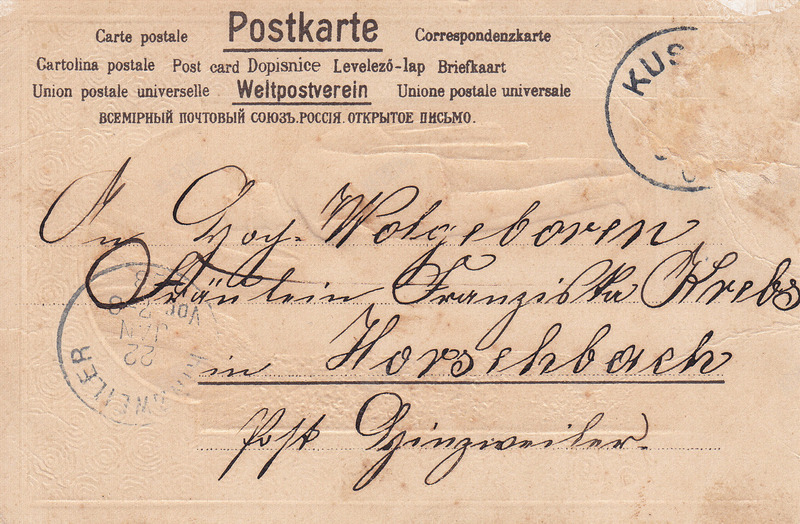 Carte postale Postkarte Correspondenzkarte
Cartolina postale Post card Dopisnice Levelező-lap Briefkaart
Union postale universelle Weltpostverein Unione postale universale
ВСЕМІРНЫЙ ПОЧТОВЫЙ СОЮЗЪ.РОССІЯ. ОТКРЫТОЕ ПИСЬМО.
KUS
An Hoch-Wolgeboren
Fräulein Franziska Krebs
in Horschbach
Post Hinzweiler.
22
JAN
VOR